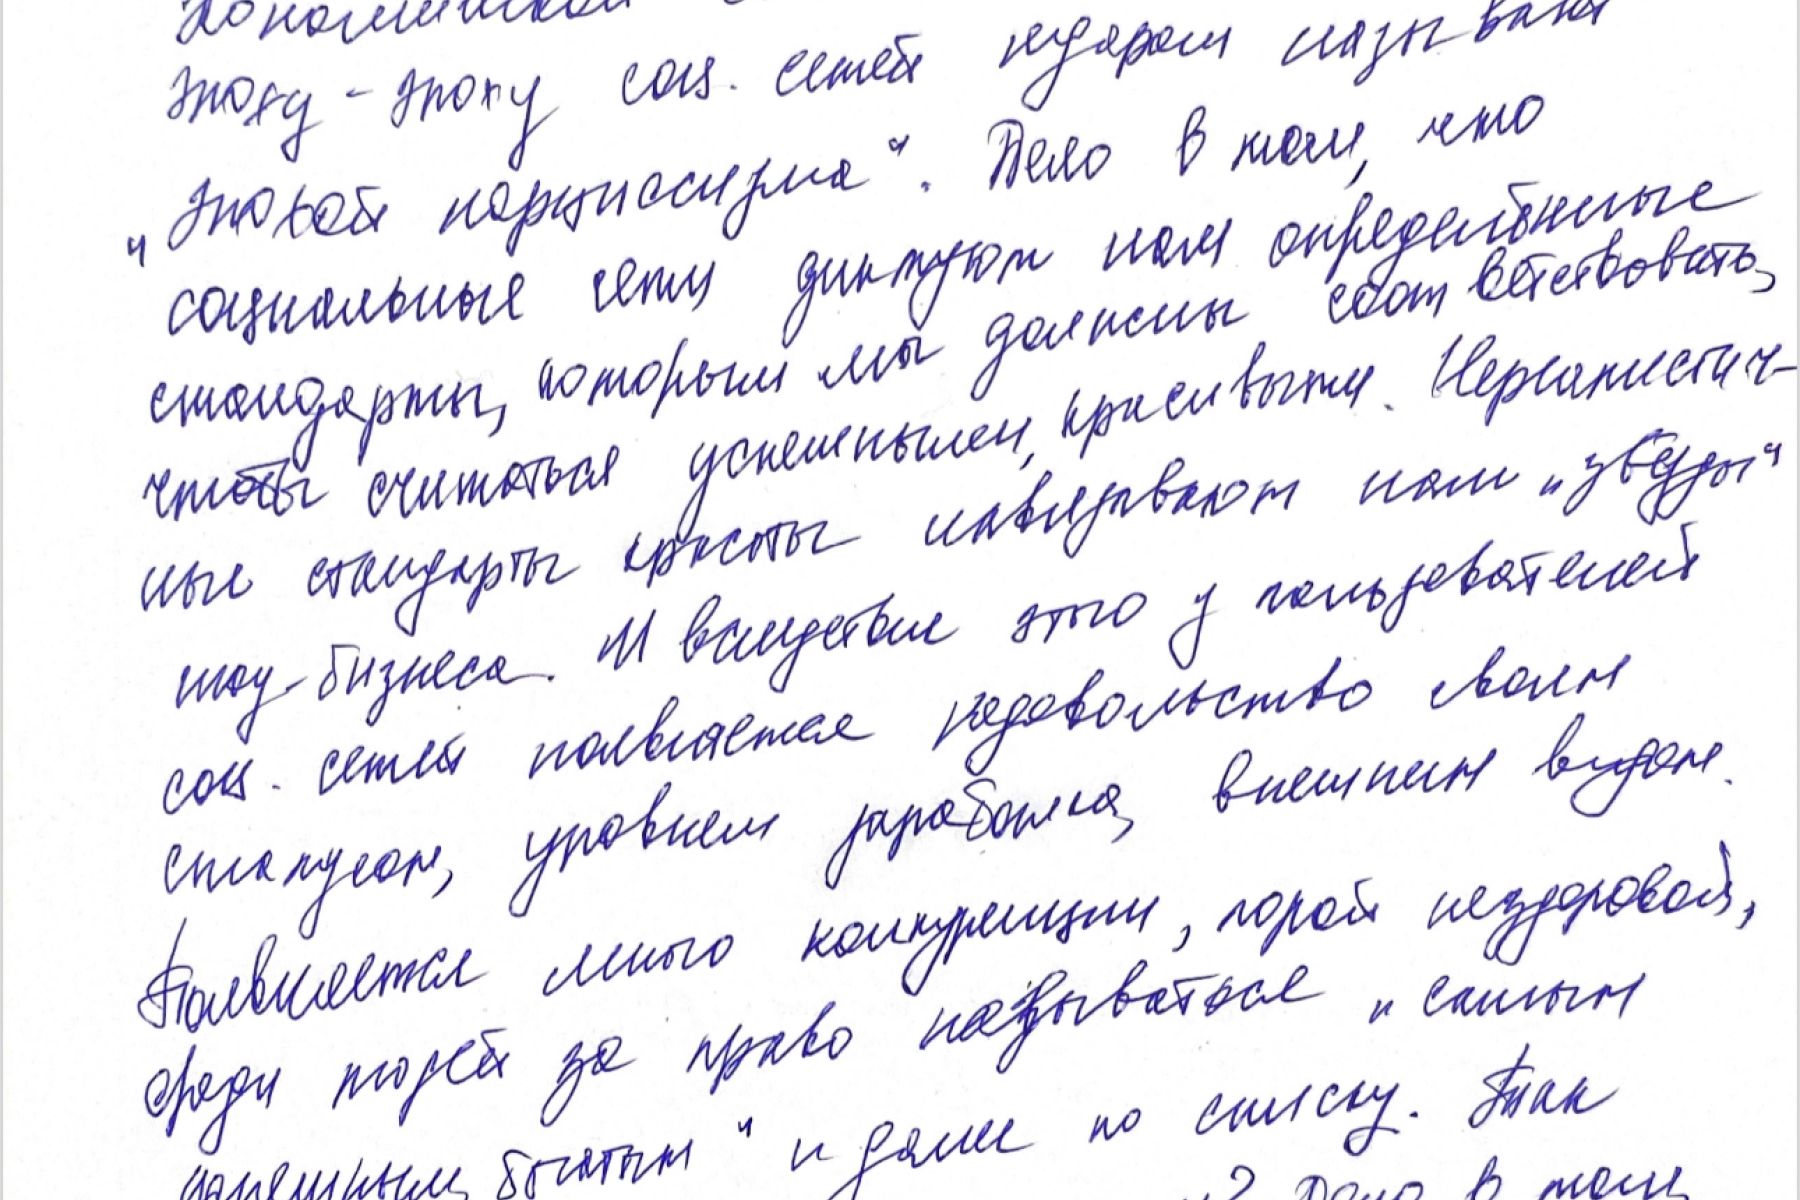 эпоху - эпоху соц. сетей недаром называют
„эпохой нарциссизма“. Дело в том, что
социальные сети диктуют нам определённые
стандарты, которым мы должны соответствовать,
чтобы считаться успешными, красивыми. Нереалистич-
ные стандарты красоты навязывают нам „звёзды“
шоу-бизнеса. И вследствие этого у пользователей
соц. сетей появляется недовольство своим
статусом, уровнем заработка, внешним видом.
Появляется много конкуренции, порой нездоровой,
среди людей за право называться „самым
успешным, богатым“ и далее по списку. Так
Дело в том,